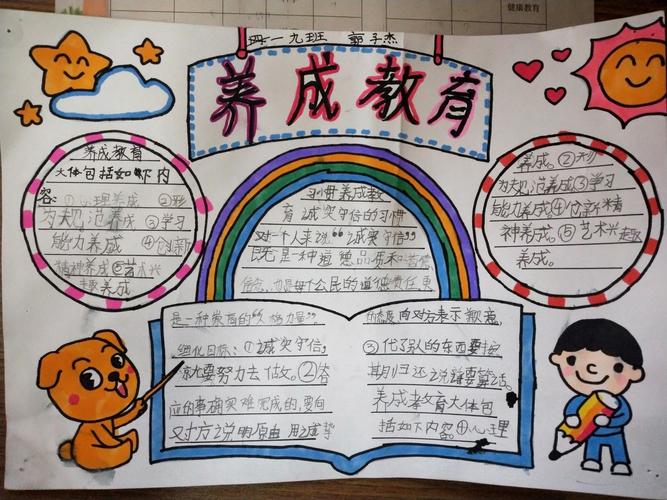 健康教育
四一九班 郭子杰
养成教育
养成教育
大体包括如下内
容:①心理养成 ②形
为规范养成 ③学习
能力养成 ④创新
精神养成⑤艺术兴
趣养成
习惯养成教
育诚实守信的习惯
对一个人来说“诚实守信”
既是一种道德品质和
也是每个公民的道德责任更
是一种崇高的“人格力量”。
细化目标:①诚实守信,
就要努力去做。②答
应的事确实难完成的,要向
对方说明原由 用诚挚
的态度向对方表示歉意,
③代了别的东西要按
期归还说话要算话。
养成孝教育大体包
括如下内容。①心理
养成。②形
为规范养成③学习
能力养成④创新精
神养成。⑤艺术兴趣
养成。